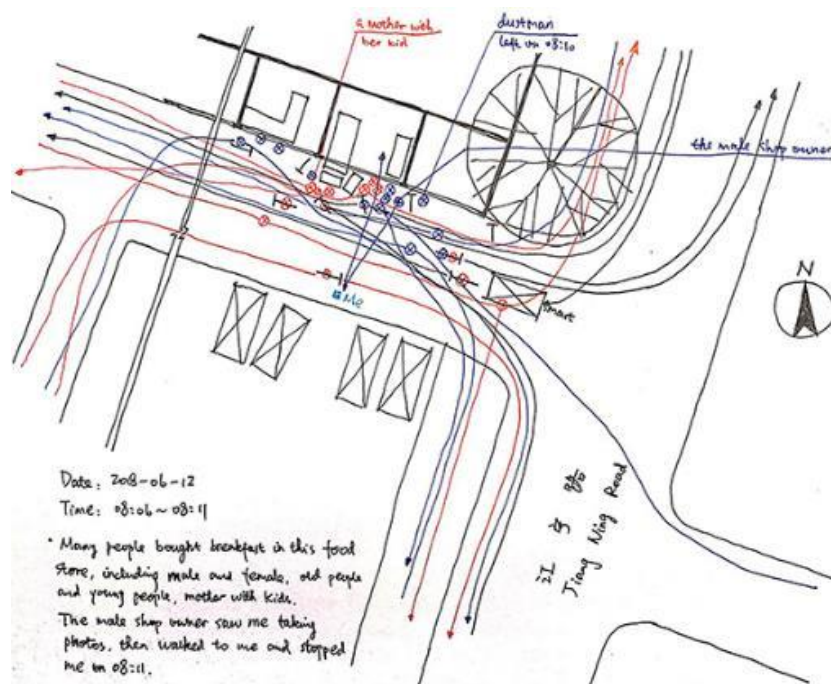 a mother with
her kid
dustman
left on 08:10
the male shop owner
N
Me
smart
江宁路
Jiang Ning Road
Date: 2018-06-12
Time: 08:06~08:11
• Many people bought breakfast in this food
store, including male and female, old people
and young people, mother with kids.
The male shop owner saw me taking
photos, then walked to me and stopped
me on 08:11.